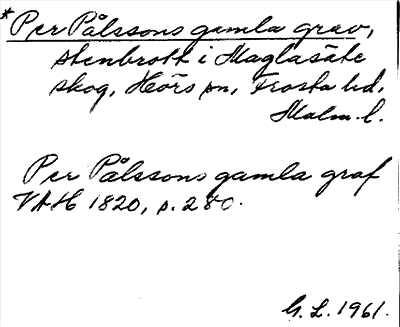 *Per Pålssons gamla grav,
stenbrott i Maglasäte
skog, Hörs sn, Frosta hd,
Malm. l.
Per Pålssons gamla graf
VAH 1820, p. 280.
G. L. 1961.